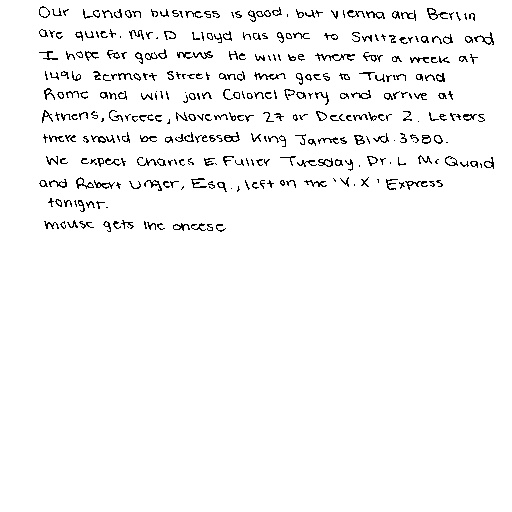 Our London business is good, but Vienna and Berlin
are quiet. Mr. D Lloyd has gone to Switzerland and
I hope for good news He will be there for a week at
1496 Zermott Street and then goes to Turin and
Rome and will join Colonel Parry and arrive at
Athens, Greece, November 27 or December 2. Letters
there should be addressed King James Blvd. 3580.
We expect Charles E. Fuller Tuesday. Dr. L Mc Quaid
and Robert Unger, Esq., left on the 'V.X' Express
tonight.
mouse gets the cheese